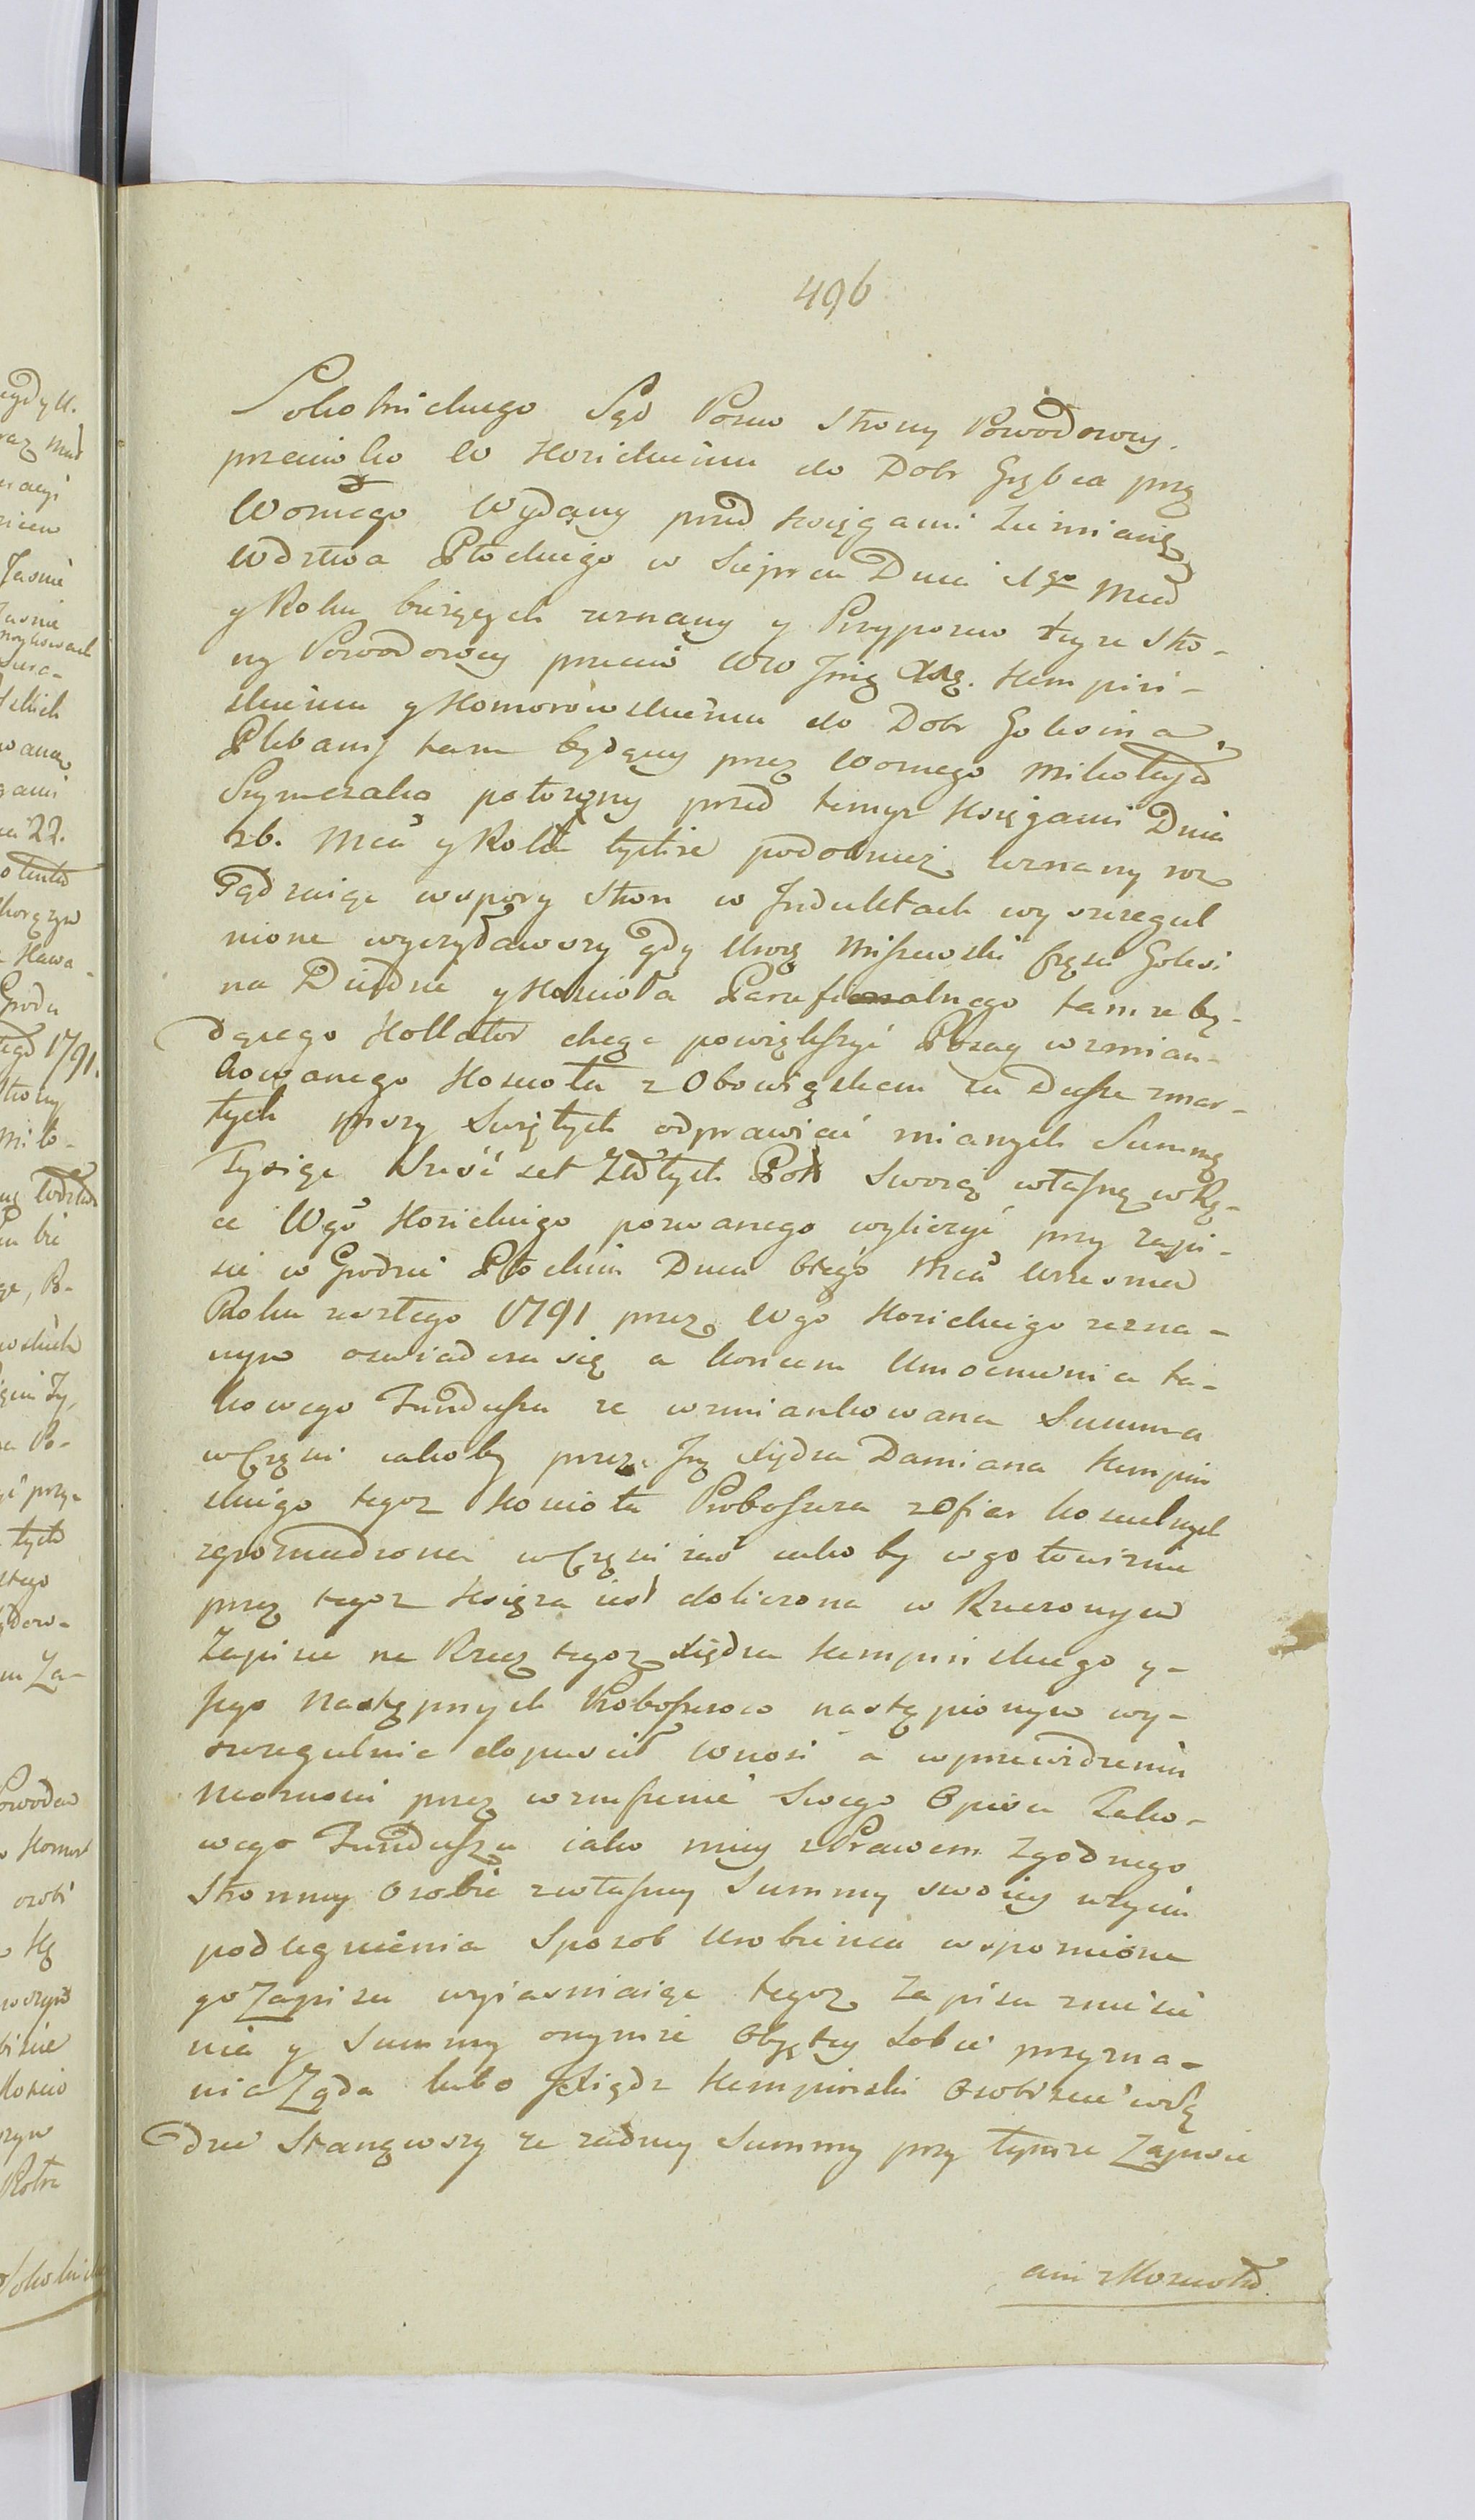 496
Sokolnickiego Sąd Pozew Strony Powodowey.
przeciwko W Kosickiemu do Dobr Grębca przez
Woznego Wydany przed Xsięgami Ziemiańs
Wdztwa Płockiego w Sierpcu Dnia 1go Mca
y Roku bieżących zeznany y Przypozew teyże Stro-
ny Powodowey przeciw WW Jmę Xdzę. Kempiń-
skiemu y Komorowskiemu do Dobr Golesina
Plebanij tam będącey przez Woznego Mikołaja
Szymczaka położony przed temyż Księgami Dnia
26. Mca y Roku tychże podobnież zeznany roz
sądzaiąc wspory Stron w Induktach wyszczegul
nione wyczytawszy gdy Uroz Miszewski Częsci Golesi
na Dziedzic y Kościoła Parafialnego tamże bę-
dącego Kollator chcąc powiększyć Posag wzmian-
kowanego Kościoła z Obowiązkiem za Dusze zmar-
tych Mszy Swiętych odprawiać mianych Summę
Tysiąc Sześć set Złłtych Pol Swoią własną w Rę-
ce Wgo Kosickiego pozwanego wyliczyć przy zapi-
sie w Grodzie Płockim Dnia 6tego Mca Wrzesnia
Roku zeszłego 1791 przez Wgo Kosickiego zezna-
nym oswiadcza się a koncem Umocnienia ta-
kowego Funduszu ze wzmiankowana Summa
w Częsci iakoby przez Jmę Xiędza Damiana Kempiń
skiego tegoż Koscioła Proboszcza z Ofiar koscielnych
zgromadzona w Częsci zaś iakoby w gotowiznie
przez tegoż Księza iest doliczona w Rzeczonym
Zapisie na Rzecz tegoż Xiędza Kempińskiego y-
Jego Następnych Proboszczow nastąpionym wy-
szczegulnie dopuscił Wnosi a w przewidzeniu
Nieważnosci przez wzruszenie Swego Opisu Tako-
wego Funduszu iako niey z Prawem Zgodnego
Stronney Osobie z własney Summy swoiey w tym
podlegnienia Sposob Urobienia wspomnione
go Zapisu wyiasniaiąc tegoż Zapisu zniesie
nia y Summy onymże Obiętey Sobie przyzna-
nia Żąda lubo Xiądz Kempiński Osobiscie w Są
dzie Stanąwszy ze żadney Summy przy tymże Zapisie
ani z Koscioła